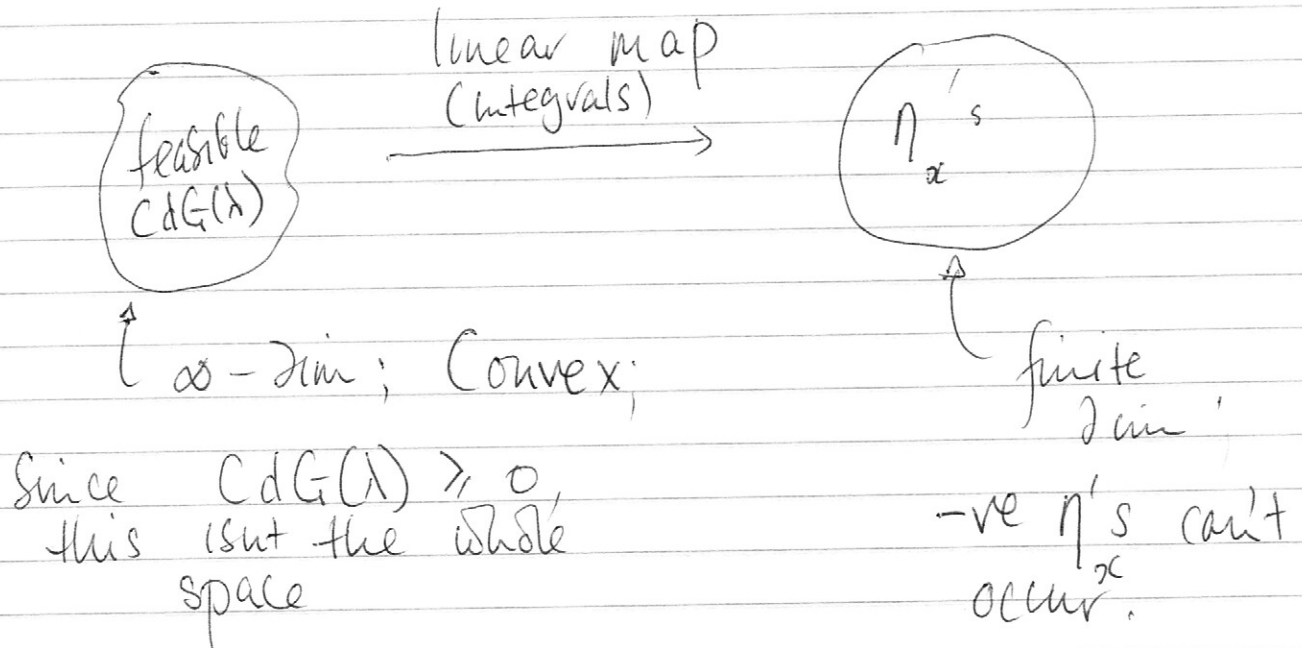 linear map
(integrals)
feasible
CdG(λ)
ηₓ's
∞-dim; Convex;
finite
dim;
Since CdG(λ) ≥ 0,
this isnt the whole
space
-ve ηₓ's can't
occur.